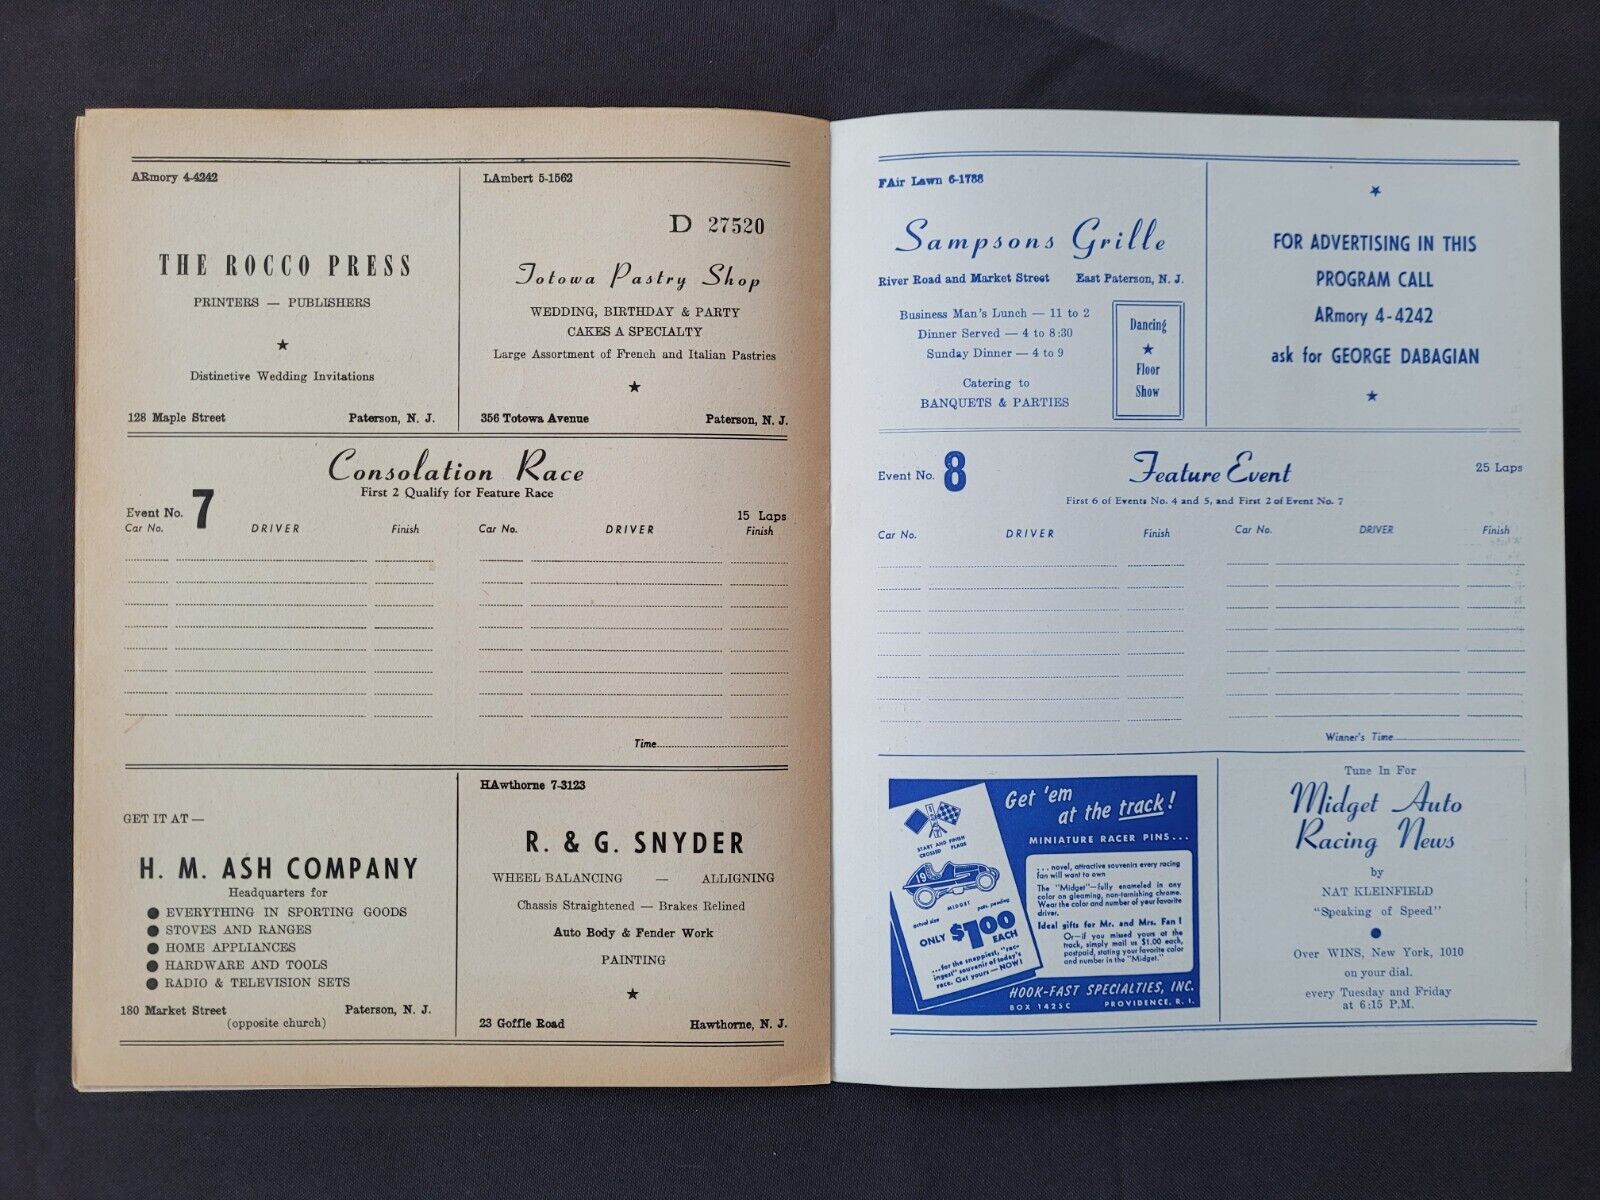 ARmory 4-4242
THE ROCCO PRESS
PRINTERS — PUBLISHERS
★
Distinctive Wedding Invitations
128 Maple Street Paterson, N. J.
LAmbert 5-1562
D 27520
Totowa Pastry Shop
WEDDING, BIRTHDAY & PARTY
CAKES A SPECIALTY
Large Assortment of French and Italian Pastries
★
356 Totowa Avenue Paterson, N. J.
Consolation Race
First 2 Qualify for Feature Race
Event No. 7 15 Laps
Car No. DRIVER Finish Car No. DRIVER Finish
Time
GET IT AT —
H. M. ASH COMPANY
Headquarters for
● EVERYTHING IN SPORTING GOODS
● STOVES AND RANGES
● HOME APPLIANCES
● HARDWARE AND TOOLS
● RADIO & TELEVISION SETS
180 Market Street Paterson, N. J.
(opposite church)
HAwthorne 7-3123
R. & G. SNYDER
WHEEL BALANCING — ALLIGNING
Chassis Straightened — Brakes Relined
Auto Body & Fender Work
PAINTING
★
23 Goffle Road Hawthorne, N. J.
FAir Lawn 6-1788
Sampsons Grille
River Road and Market Street East Paterson, N. J.
Business Man's Lunch — 11 to 2
Dinner Served — 4 to 8:30
Sunday Dinner — 4 to 9
Catering to
BANQUETS & PARTIES
Dancing
★
Floor
Show
★
FOR ADVERTISING IN THIS
PROGRAM CALL
ARmory 4-4242
ask for GEORGE DABAGIAN
★
Event No. 8 Feature Event 25 Laps
First 6 of Events No. 4 and 5, and First 2 of Event No. 7
Car No. DRIVER Finish Car No. DRIVER Finish
Winner's Time
Get 'em
at the track!
MINIATURE RACER PINS...
START AND FINISH
CROSSED FLAGS
19
MIDGET
actual size pats. pending
ONLY $1.00 EACH
...for the snappiest, "rac-
ingest" souvenir of today's
race. Get yours—NOW!
...novel, attractive souvenirs every racing
fan will want to own
The "Midget"—fully enameled in any
color on gleaming, non-tarnishing chrome.
Wear the color and number of your favorite
driver.
Ideal gifts for Mr. and Mrs. Fan!
Or—if you missed yours at the
track, simply mail us $1.00 each,
postpaid, stating your favorite color
and number in the "Midget."
HOOK-FAST SPECIALTIES, INC.
BOX 1425C PROVIDENCE, R. I.
Tune In For
Midget Auto
Racing News
by
NAT KLEINFIELD
"Speaking of Speed"
●
Over WINS, New York, 1010
on your dial.
every Tuesday and Friday
at 6:15 P.M.